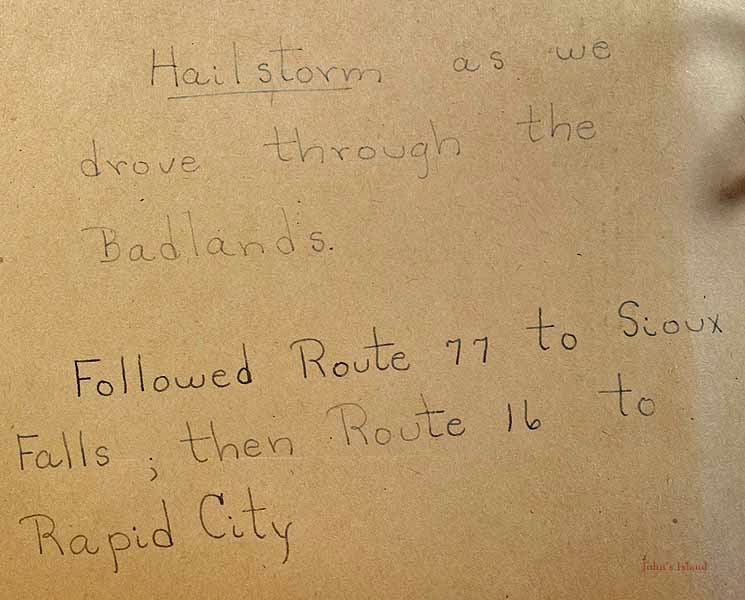 Hailstorm as we
drove through the
Badlands.
Followed Route 77 to Sioux
Falls ; then Route 16 to
Rapid City
John's Island